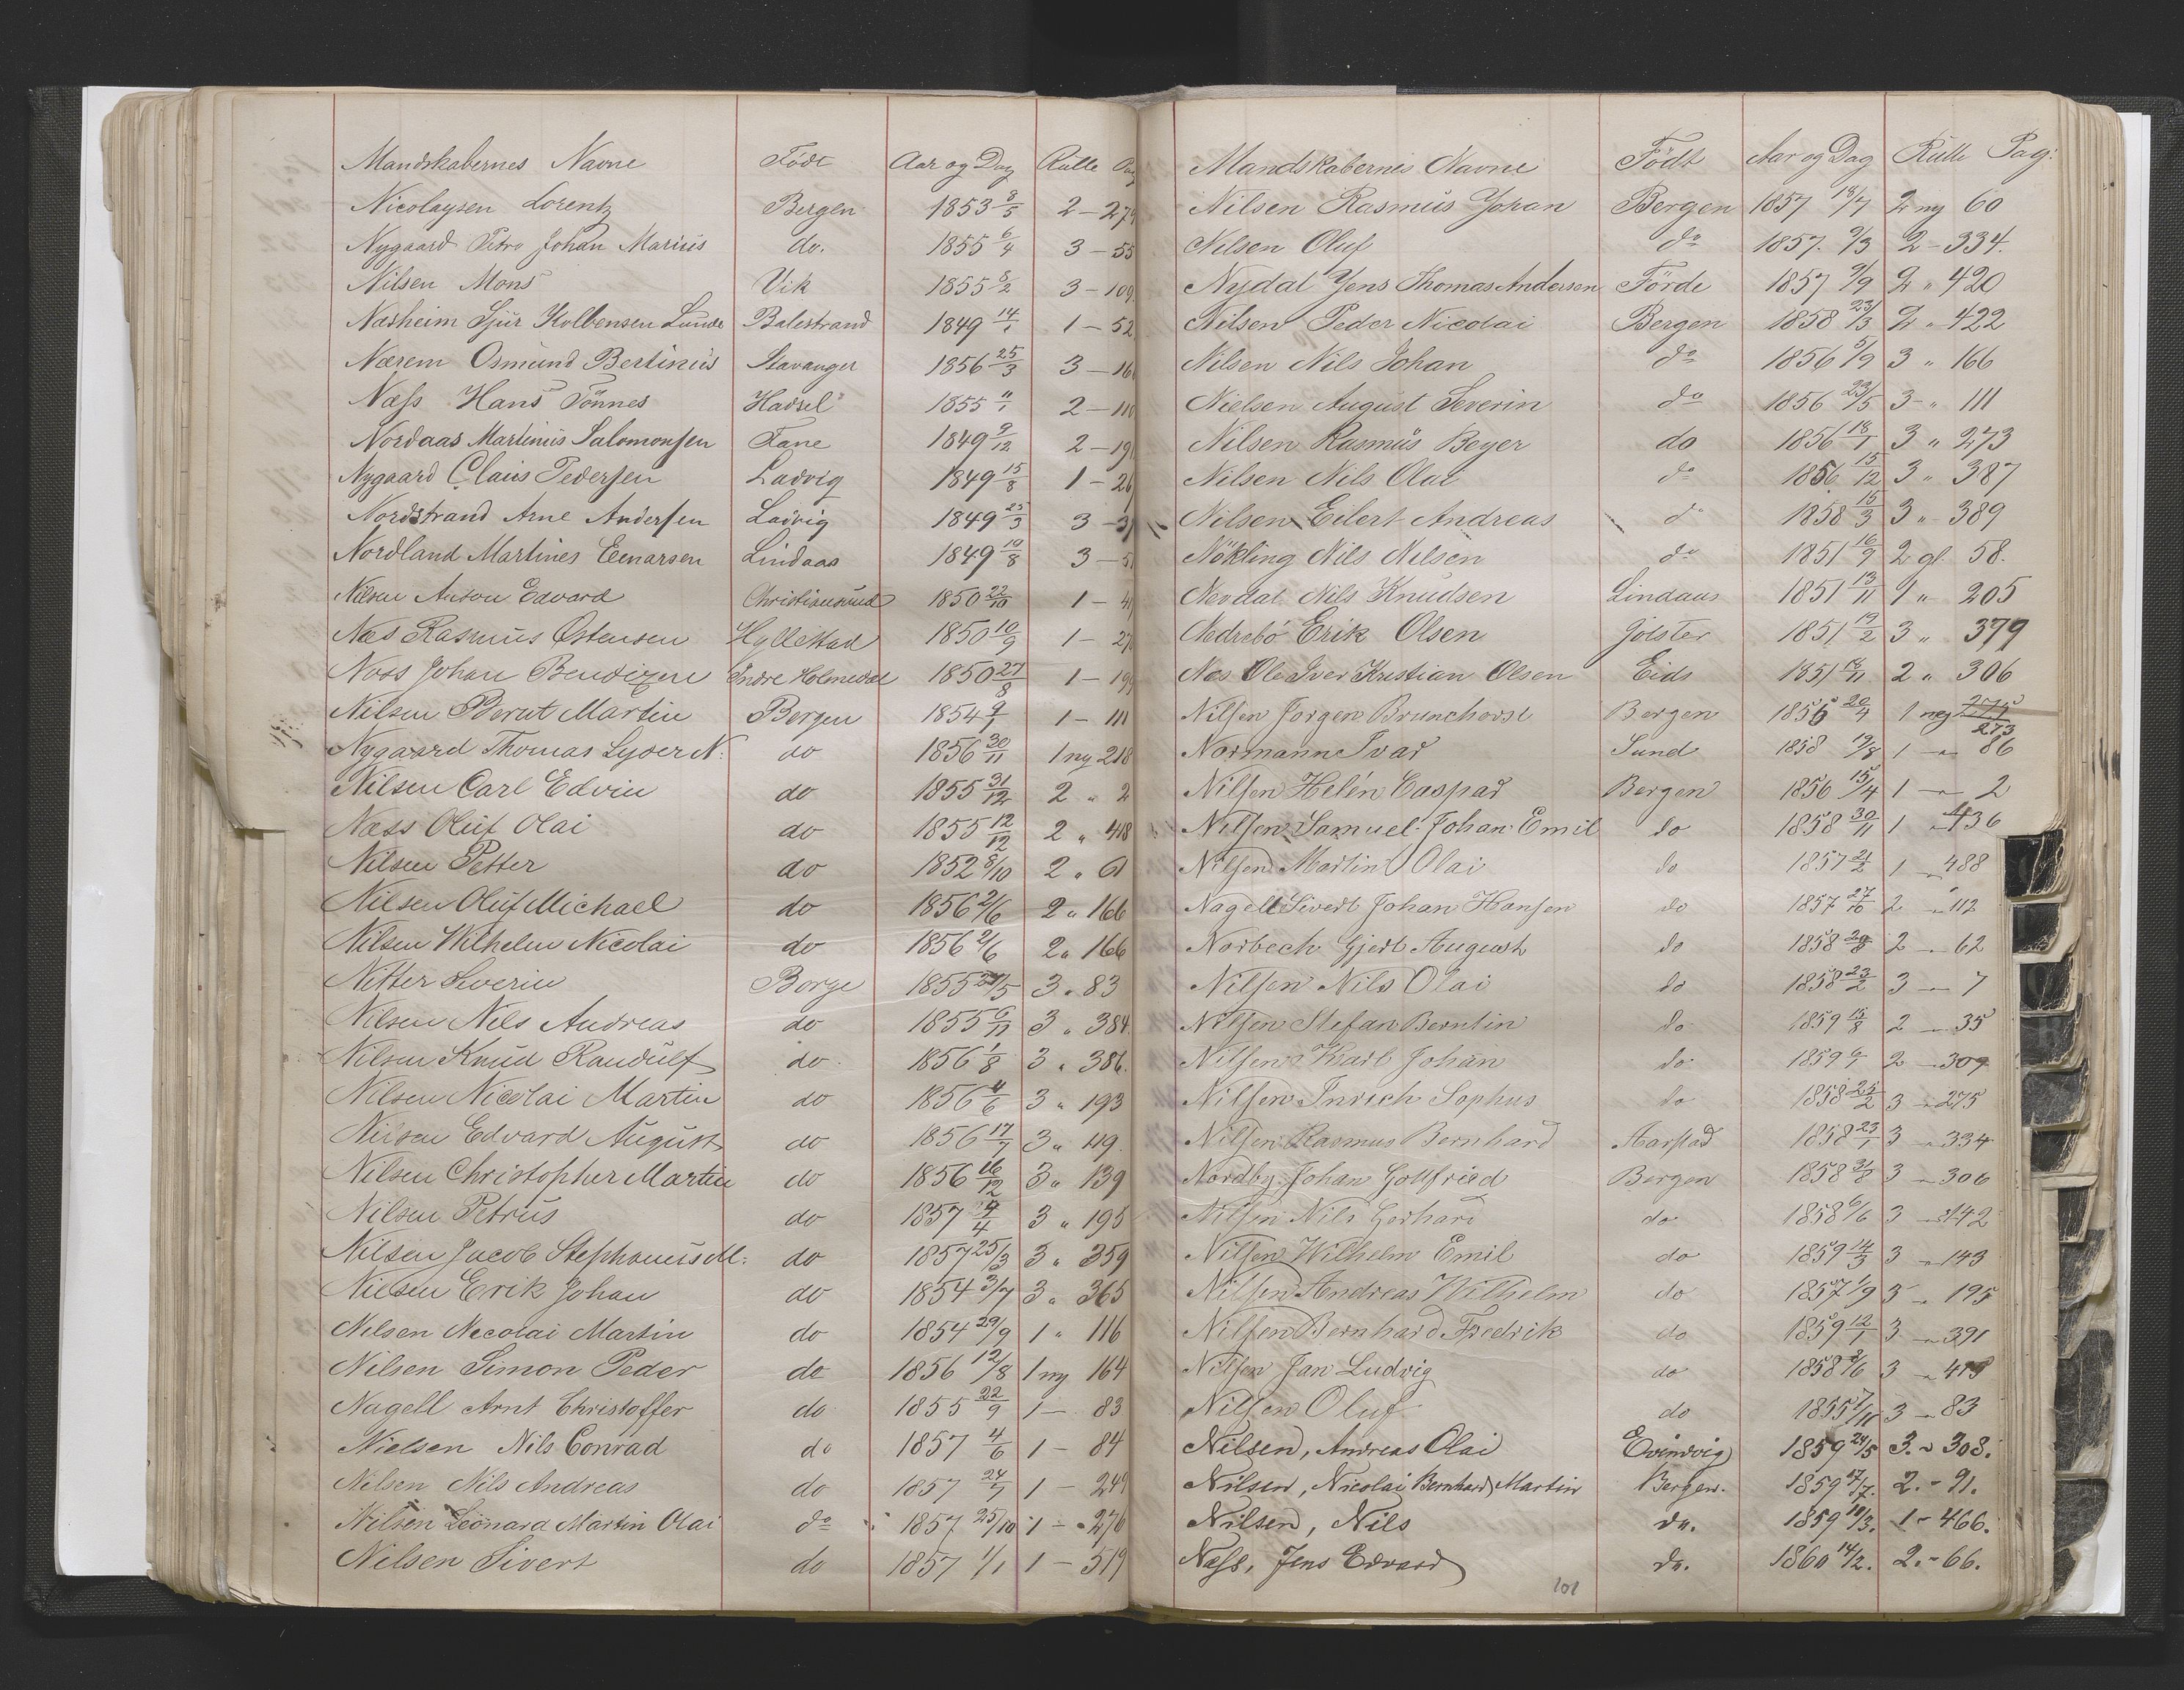 Mandskabernes Navne Födt Aar og Dag Rulle Pag
Nicolaysen Lorentz Bergen 1853 8/5 2 - 279
Nygaard Petro Johan Marius do. 1855 6/4 3 - 55
Nilsen Mons Vik 1855 8/2 3 - 109
Næsheim Sjur Kolbensen Lunde Balestrand 1849 14/1 1 - 52
Nærem Osmund Bertinius Stavanger 1856 25/3 3 - 16
Næss Hans Tönnes Hadsel 1855 11/1 2 - 110
Nordaas Martinus Salomonsen Fane 1849 9/12 2 - 19
Nygaard Claus Pedersen Ladvig 1849 15/8 1 - 26
Nordstrand Arne Andersen Ladvig 1849 25/3 3 - 3
Nordland Martines Eenarsen Lindaas 1849 10/8 3 - 5
Nilsen Anton Edvard Christiansund 1850 22/10 1 - 4
Næs Rasmus Ostensen Hyllestad 1850 10/9 1 - 27
Noss Johan Bendixen Indre Holmedal 1850 27/8 1 - 19
Nilsen Berut Martin Bergen 1854 9/1 1 - 111
Nygaard Thomas Lyder N. do 1856 30/11 1 ny 218
Nilsen Carl Edvin do 1855 31/12 2 " 2
Næss Oluf Olai do 1855 12/12 2 " 418
Nilsen Petter do 1852 8/10 2 " 61
Nilsen Oluf Michael do 1856 2/6 2 " 166
Nilsen Wilhelm Nicolai do 1856 2/6 2 " 166
Nitter Severin Borge 1855 24/5 3 " 83
Nilsen Nils Andreas do 1855 6/11 3 " 384
Nilsen Knud Randulf do 1856 1/8 3 " 386.
Nilsen Nicolai Martin do 1856 4/6 3 " 193
Nilsen Edvard August do 1856 17/7 3 " 49.
Nilsen Christopher Martin do 1856 16/12 3 " 139
Nilsen Petrus do 1857 9/4 3 " 195
Nilsen Jacob Stephanus M. do 1857 25/3 3 " 359
Nilsen Erik Johan do 1854 3/7 3 " 365
Nilsen Necolai Martin do 1854 29/9 1 " 116
Nilsen Simon Peder do 1856 12/8 1 ny 164
Nagell Arnt Christoffer do 1855 22/9 1 - 83
Nielsen Nils Conrad do 1857 4/6 1 - 84
Nilsen Nils Andreas do 1857 24/7 1 - 249
Nilsen Leonard Martin Olai do 1857 25/10 1 - 270
Nilsen Sivert do 1857 1/1 1 - 519
Mandskabernes Navne Födt Aar og Dag Rulle Pag:
Nilsen Rasmus Johan Bergen 1857 18/7 2 ny 60
Nilsen Oluf do 1857. 9/3 2 - 334.
Nydal Jens Thomas Andersen Förde 1857 9/9 2 " 420
Nilsen Peder Nicolai Bergen 1858 23/3 2 " 422
Nilsen Nils Johan do 1856 5/9 3 " 166
Nielsen August Severin do 1856 23/5 3 - " 111
Nilsen Rasmus Beyer do 1856 18/1 3 " 273
Nilsen Nils Olai do 1856 15/12 3 " 387
Nilsen Eilert Andreas do 1858 15/3 3 " 389
Nökling Nils Nilsen do 1851 16/9 2 gl. 58.
Nevdal Nils Knudsen Lindaas 1851 13/11 1 " 205
Nedrebö Erik Olsen Jölster 1851 19/2 3 " 379
Næs Ole Iver Kristian Olsen Eids 1851 18/11 2 " 306
Nilsen Jörgen Brunchorst Bergen 1856 20/4 1 neg 275
273
Normann Ivar Sund 1858 19/8 1 - " 86
Nilsen Helén Caspar Bergen 1856 15/4 1 - " 2
Nilsen Samuel Johan Emil do 1858 30/11 1 " 436
Nilsen Martin Olai do 1857 21/2 1 " 488
Nagell Sivert Johan Hansen do 1857 27/10 2 " 112
Norbech Gjert August do 1858 29/8 2 - 62
Nilsen Nils Olai do 1858 23/2 3 - 7
Nilsen Stefan Berntin do 1859 15/8 2 - 35
Nilsen Karl Johan do 1859 6/1 2 - 309
Nilsen Inrich Sophus do 1858 25/2 3 - 275
Nilsen Rasmus Bernhard Aarstad 1858 23/1 3 - 334
Nordby Johan Gottfried Bergen 1858 31/8 3 - 306
Nilsen Nils Gerhard do 1858 6/6 3 - 142
Nilsen Wilhelm Emil do 1859 14/3 3 - 143
Nilsen Andreas Wilhelm do 1857 1/9 3 - 195
Nilsen Bernhard Fredrik do 1859 12/1 3 - 391
Nilsen Jan Ludvig do 1858 2/6 3 - 413
Nilsen Oluf do 1855 7/11 3 - 83
Nilsen, Andreas Olai Evindvig 1859 24/5 3. - 308.
Nilsen, Nicolai Bernhard Martin Bergen. 1859 17/7. 2. - 91.
Nilsen, Nils do. 1859 10/3. 1 - 466.
Næss, Jens Edvard do. 1860 14/2. 2. - 66.
101